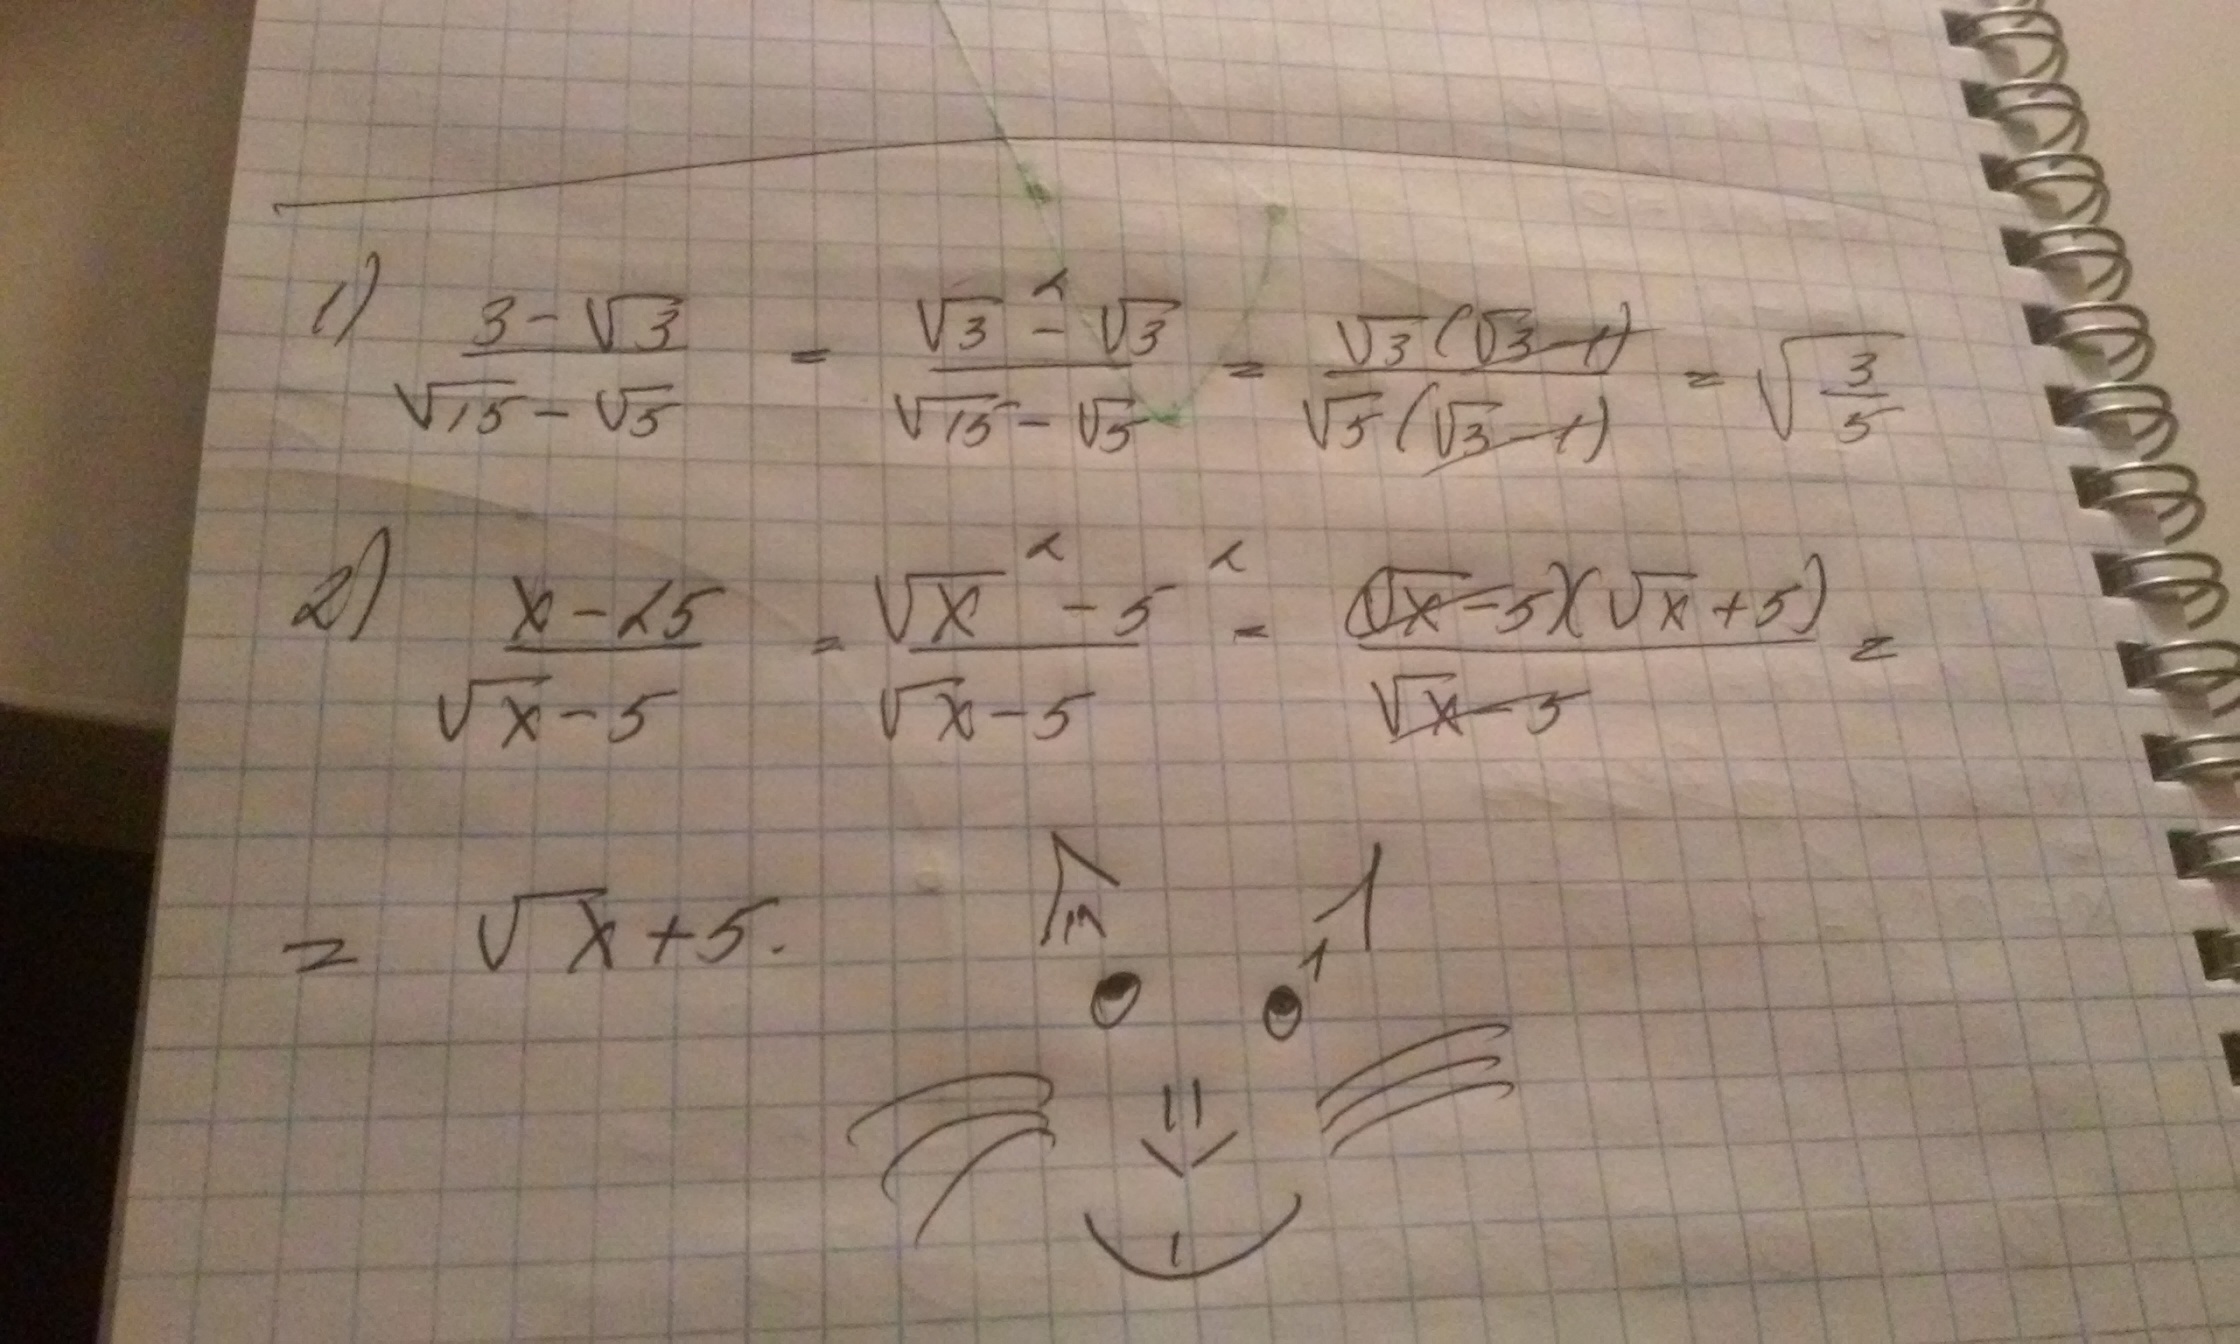 1) (3-√3)/(√15-√5) = (√3²-√3)/(√15-√5) = (√3(√3-1))/(√5(√3-1)) = √(3/5)
2) (x-25)/(√x-5) = (√x²-5²)/(√x-5) = ((√x-5)(√x+5))/(√x-5) =
= √x+5.